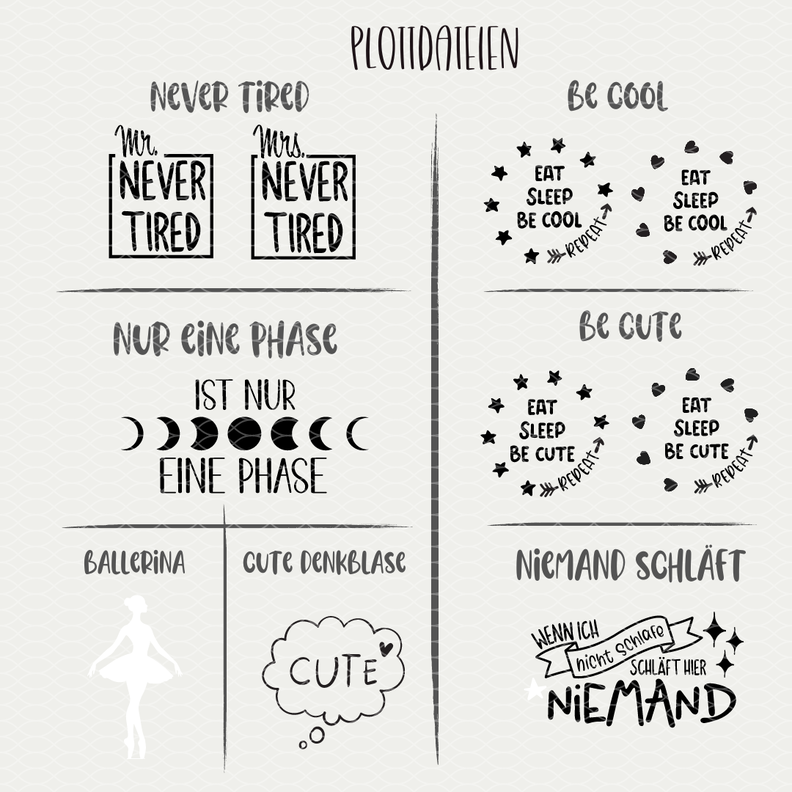 PLOTTDATEIEN
NEVER TIRED
Mr.
NEVER
TIRED
Mrs.
NEVER
TIRED
NUR EINE PHASE
IST NUR
EINE PHASE
BALLERINA
CUTE DENKBLASE
CUTE
BE COOL
EAT
SLEEP
BE COOL
REPEAT
EAT
SLEEP
BE COOL
REPEAT
BE CUTE
EAT
SLEEP
BE CUTE
REPEAT
EAT
SLEEP
BE CUTE
REPEAT
NIEMAND SCHLÄFT
WENN ICH
nicht schlafe
SCHLÄFT HIER
NIEMAND